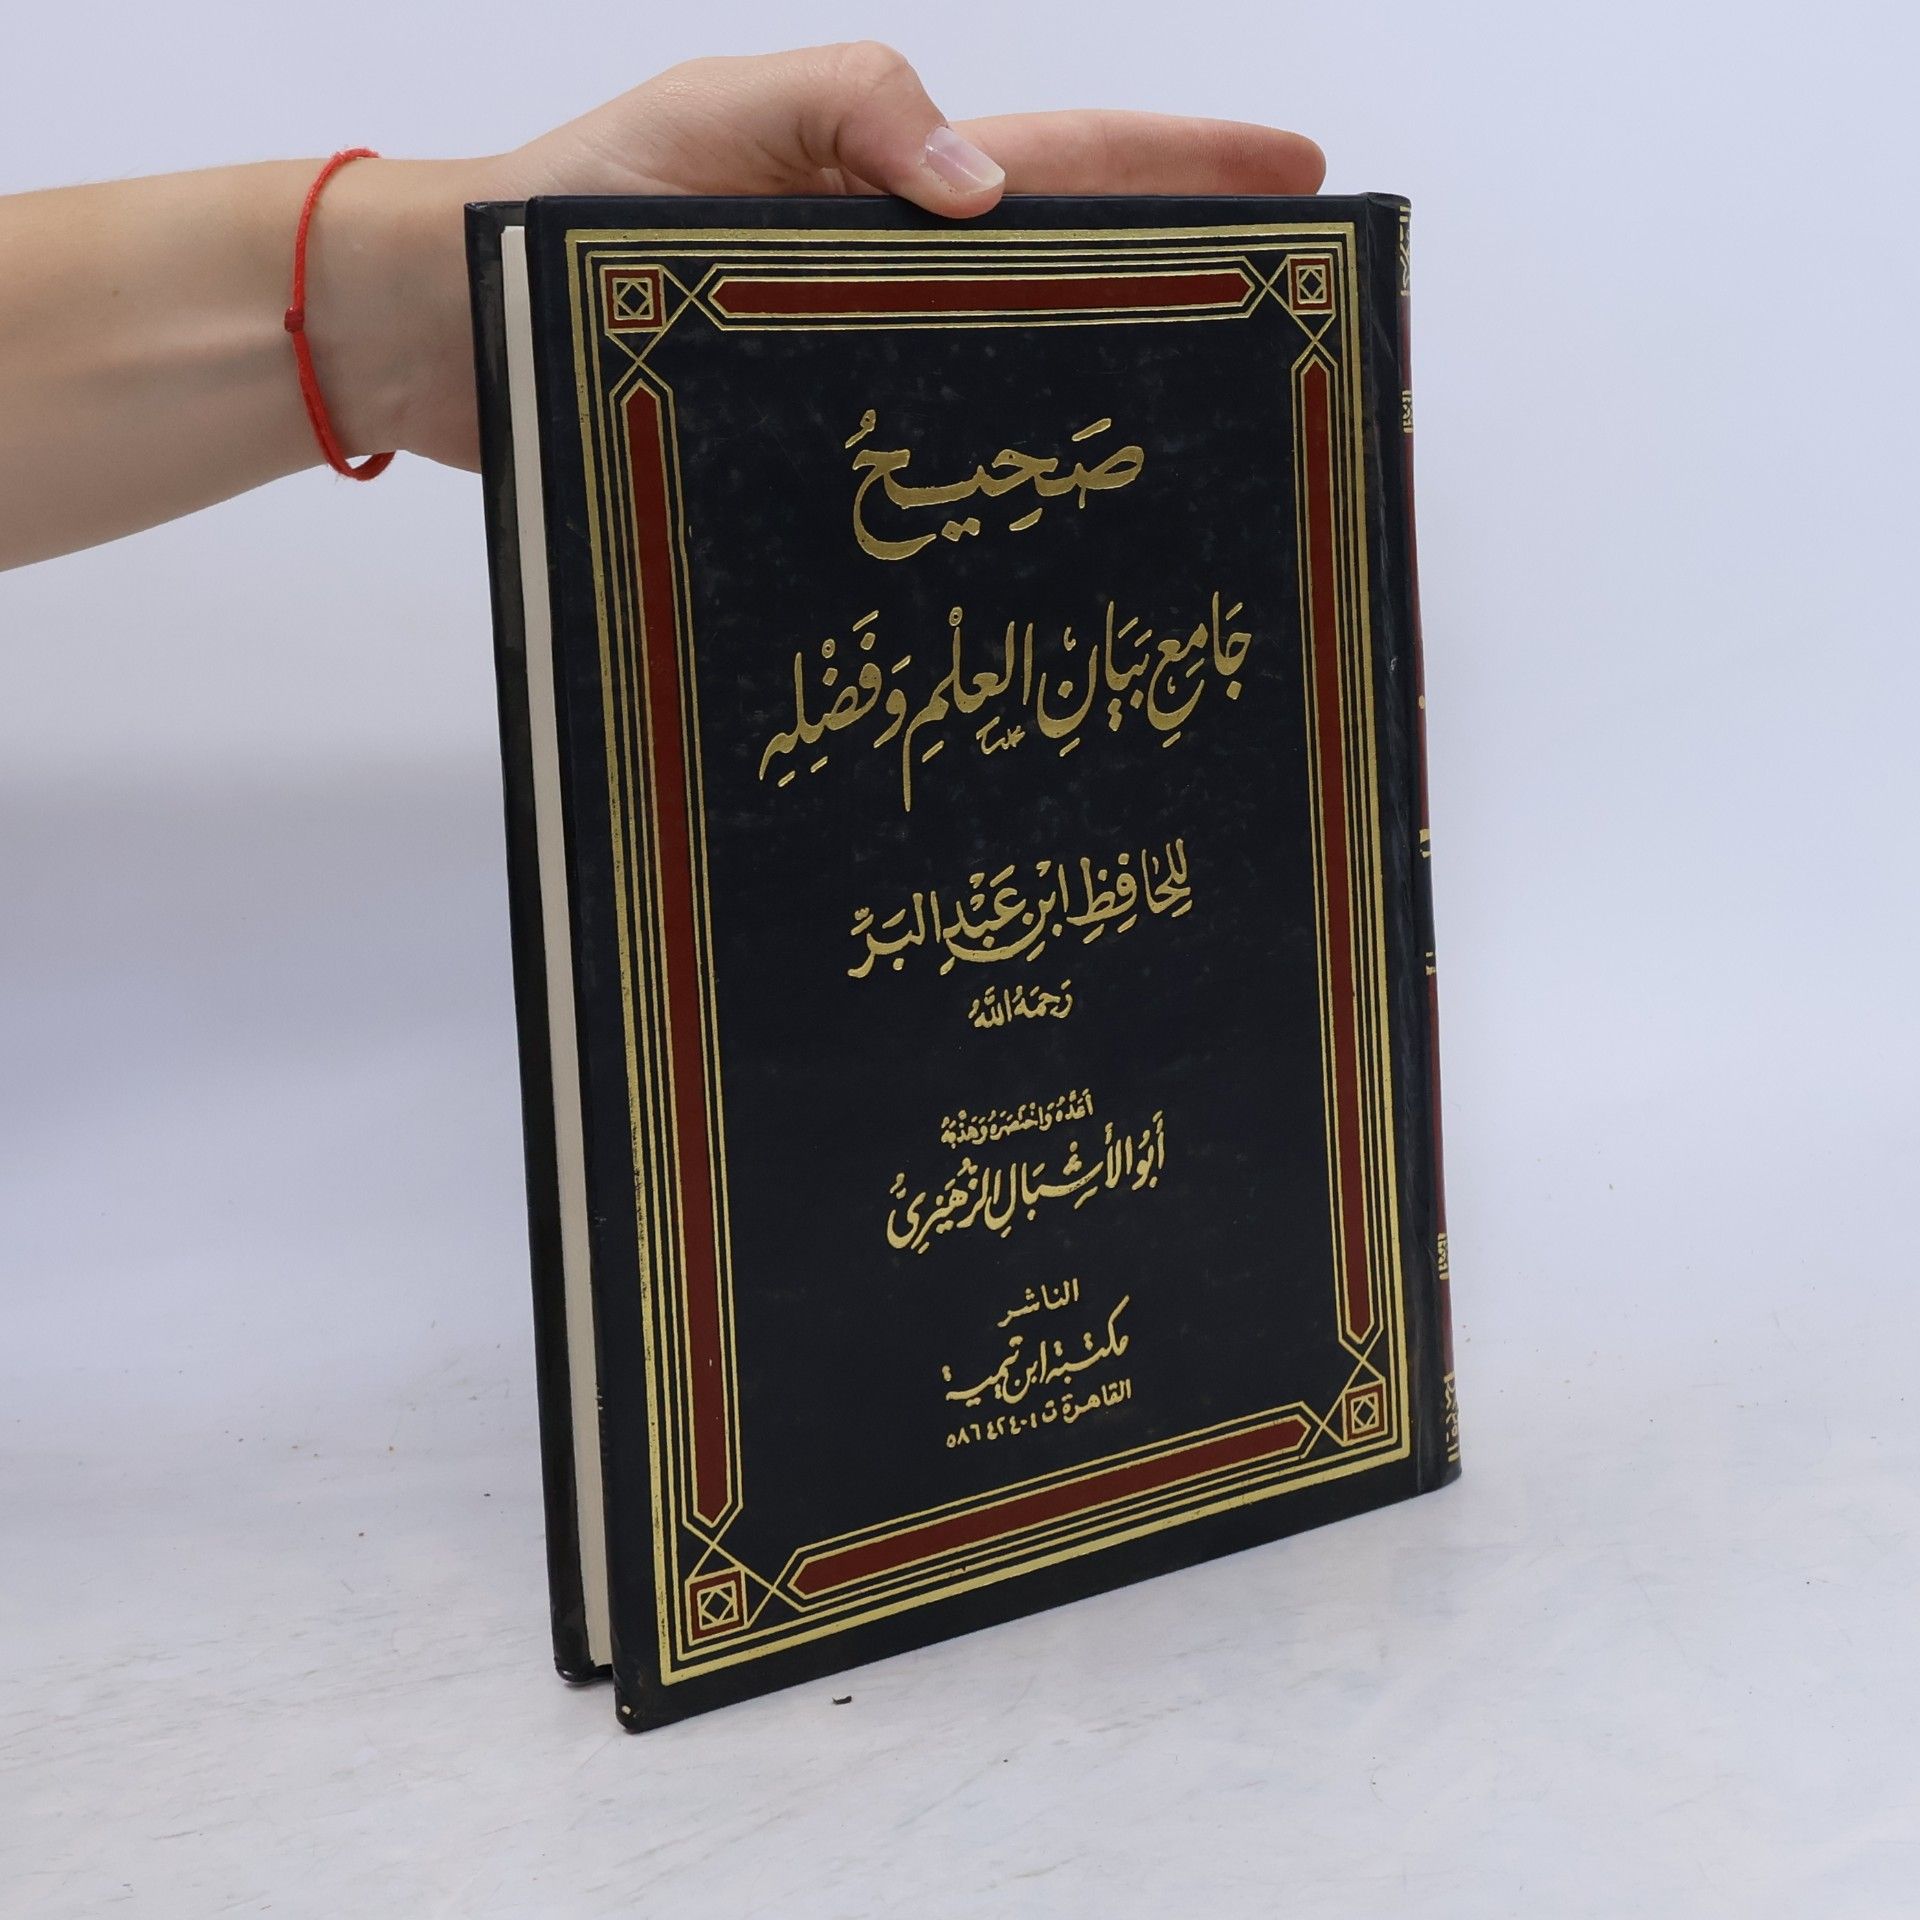 صَحِيحُ
جَامِعِ بَيَانِ العِلْمِ وَفَضْلِهِ
لِلحَافِظِ ابْنِ عَبْدِ البَرِّ
رَحِمَهُ اللَّهُ
أَعَدَّهُ وَاخْتَصَرَهُ وَهَذَّبَهُ
أَبُو الأَشْبَالِ الزُّهَيْرِيُّ
الناشر
مكتبة ابن تيمية
القاهرة ت ٥٨٦٤٢٤٠١